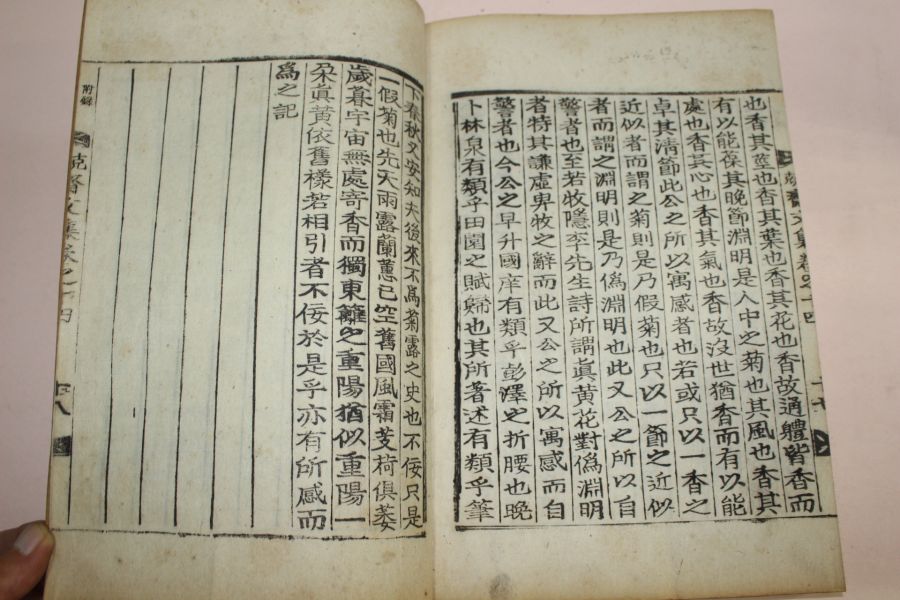 也香其莖也香其葉也香其花也香故通軆皆香而
有以能葆其晩節淵明是人中之菊也其風也香其
處也香其心也香其氣也香故沒世猶香而有以能
卓其清節此公之所以寓感者也若或只以一香之
近似者而謂之菊則是乃假菊也只以一節之近似
者而謂之淵明則是乃僞淵明也此又公之所以自
警者也至若牧隱李先生詩所謂眞黄花對僞淵明
者特其謙虛卑牧之辭而此又公之所以寓感而自
警者也今公之早升國庠有類乎彭澤之折腰也晩
卜林泉有類乎田園之賦歸也其所著述有類乎筆
下春秋又安知夫後來不爲菊露之史也不佞只是
一假菊也先天雨露蘭蕙已空舊國風霜芰荷俱萎
歲暮宇宙無處寄香而獨東籬之重陽猶似重陽一
朶眞黄依舊樣若相引者不佞於是乎亦有所感而
爲之記
附錄
文集卷之十四